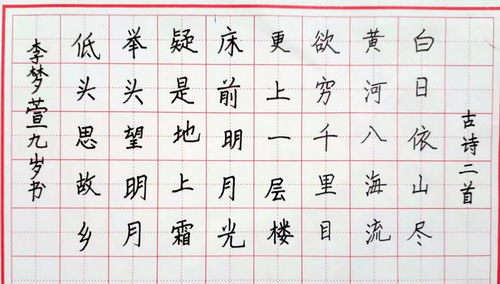 古诗二首
白日依山尽
黄河八海流
欲穷千里目
更上一层楼
床前明月光
疑是地上霜
举头望明月
低头思故乡
李梦萱九岁书